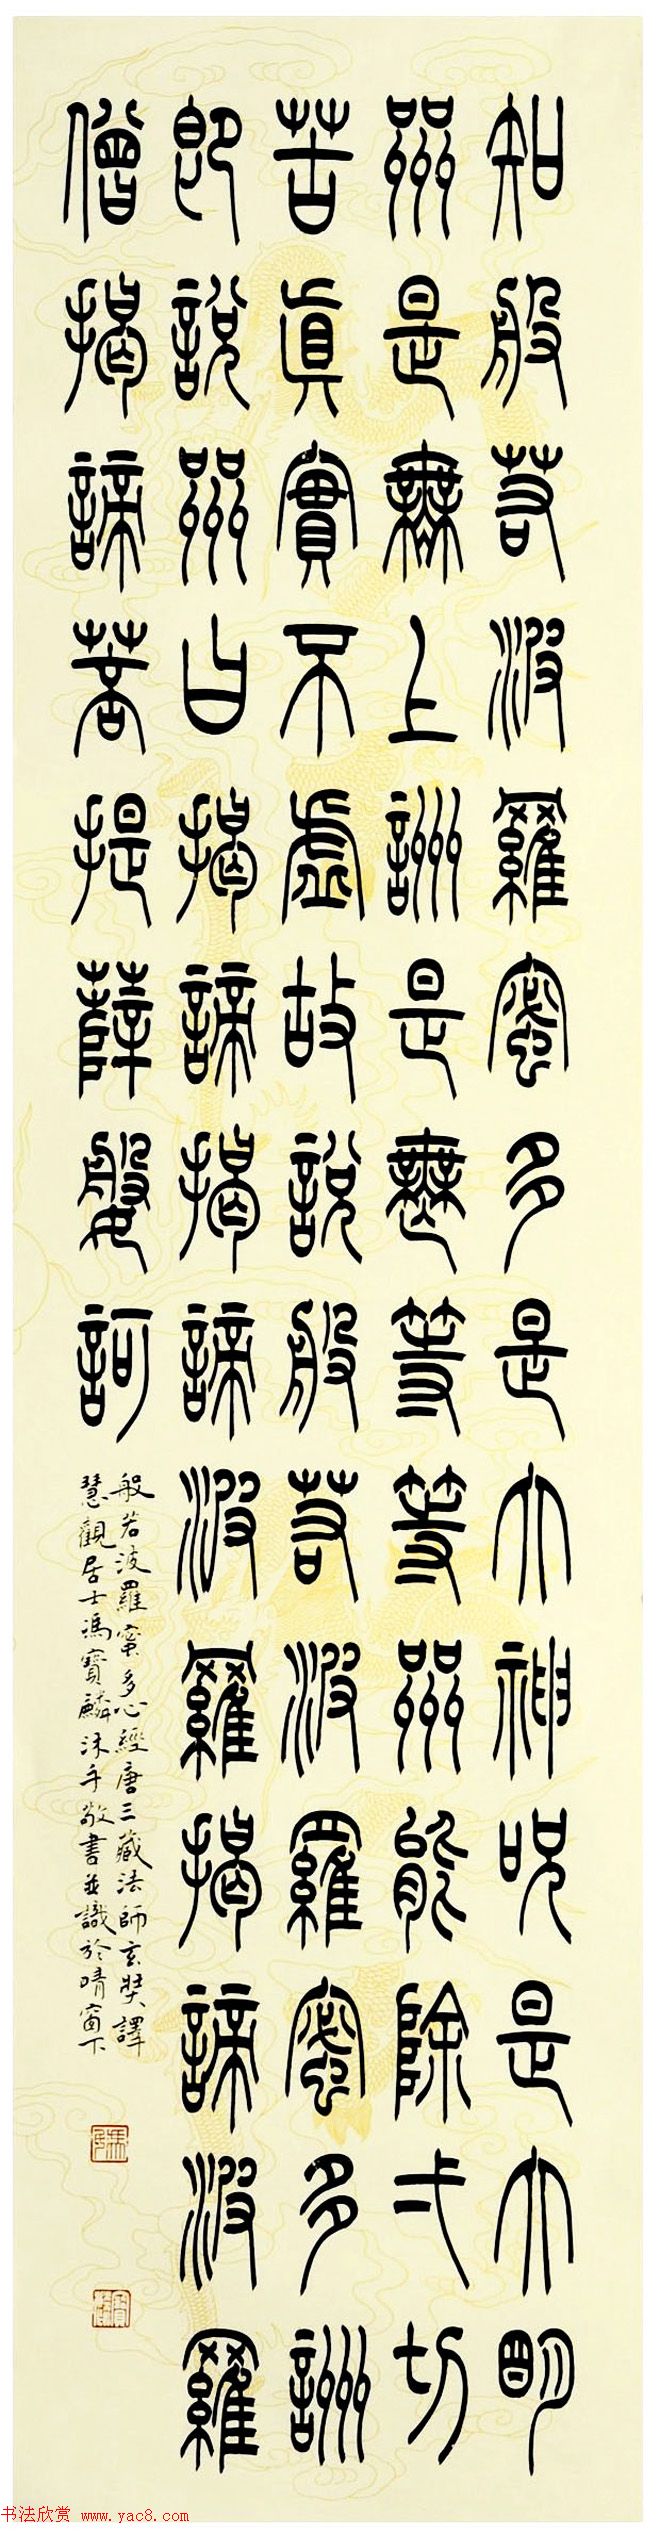 知般若波羅蜜多是大神呪是大明
喌是無上詶是無等等喌能除弌切
苦眞實不虛故說般若波羅蜜多詶
即說喌曰揭諦揭諦波羅揭諦波羅
僧揭諦菩提薛媻訶
般若波羅蜜多心經唐三藏法師玄奘譯
慧觀居士馮寶麟沐手敬書並識於晴窗下
书法欣赏 www.yac8.com